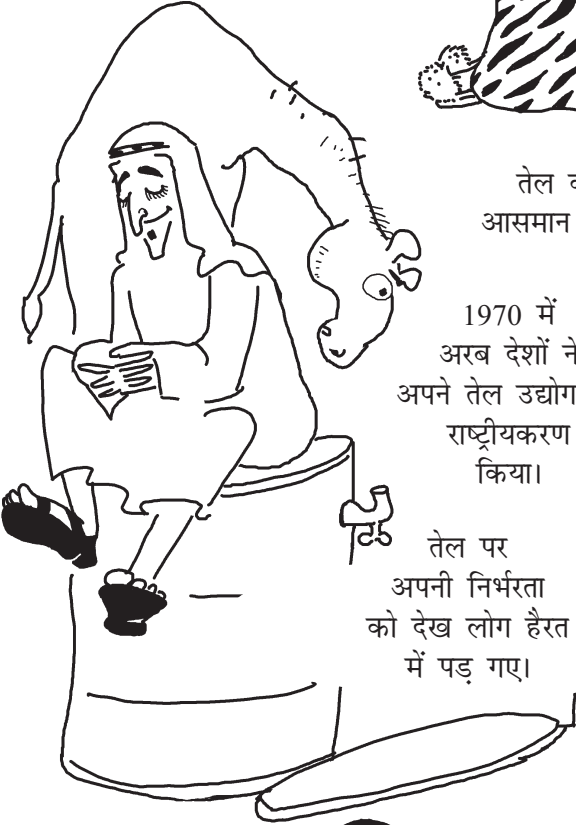 तेल
आसमान
1970 में
अरब देशों ने
अपने तेल उद्योग
राष्ट्रीयकरण
किया।
तेल पर
अपनी निर्भरता
को देख लोग हैरत
में पड़ गए।